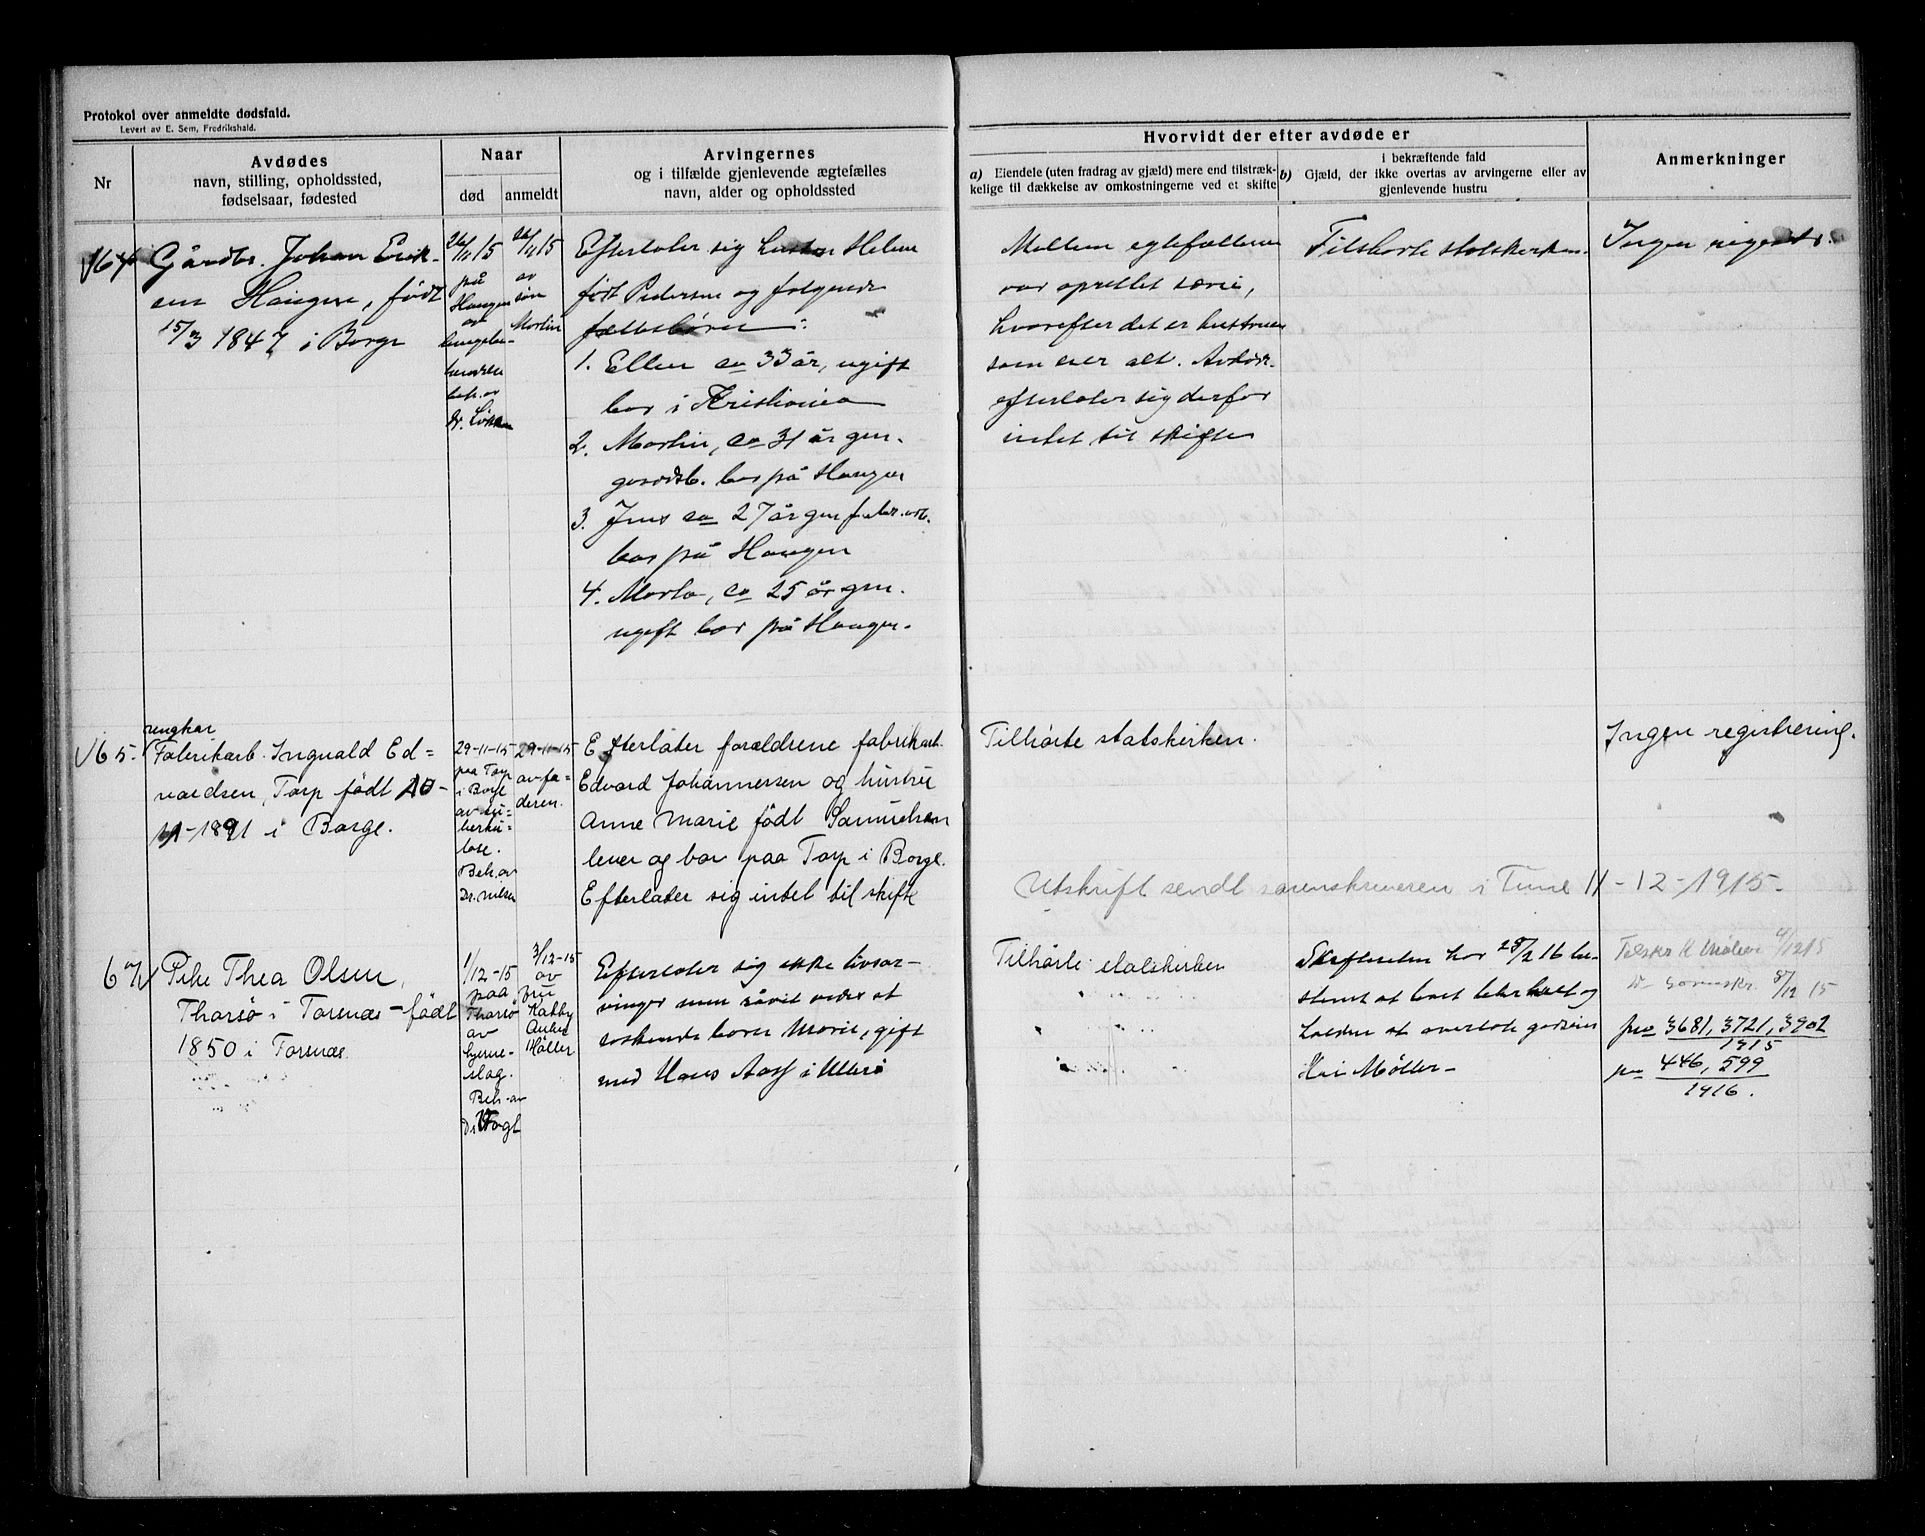 Protokol over anmeldte dødsfald.
Levert av E. Sem, Fredrikshald.
Nr
Avdødes
navn, stilling, opholdssted,
fødselsaar, fødested
Naar
død
anmeldt
Arvingernes
og i tilfælde gjenlevende ægtefælles
navn, alder og opholdssted
Hvorvidt der efter avdøde er
a) Eiendele (uten fradrag av gjæld) mere end tilstræk-
kelige til dækkelse av omkostningerne ved et skifte
i bekræftende fald
b) Gjæld, der ikke overtas av arvingerne eller av
gjenlevende hustru
Anmerkninger
64
Gårdbr. Johan Erik-
sen Haugen, født
15/3 1847 i Borge
26/11 15
på
Haugen
av
beh. av
dr. Løken
26/11 15
av
søn
Martin
Efterlater sig hustru Helene
født Pedersen og følgende
fællesbörn:
1. Ellen ca 33 år, ugift
bor i Kristiania
2. Martin, ca 31 år gam.
bor på Haugen
3. Jens ca 27 år gm fabr.arb.
bor på Haugen
4. Marta, ca 25 år gm.
ugift bor på Haugen.
Mellem egtefællerne
var oprettet særeie,
hvorefter det er hustruen
som eier alt. Avdøde
efterlater sig derfor
intet til skifte
Tilhørte statskirken.
Ingen registr.
65.
ungkar
Fabrikarb. Ingvald Ed=
vardsen, Torp født 10-
11-1891 i Borge.
29-11-15
paa Torp
i Borge
av tu=
berku=
lose.
Beh. av
Dr. Nilsen
29-11-15
av fa=
deren.
Efterlater forældrene fabrikarb.
Edvard Johannessen og hustru
Anne Marie født Samuelsen
lever og bor paa Torp i Borge.
Efterlater sig intet til skifte
Tilhörte statskirken.
Ingen registrering.
Utskrift sendt sorenskriveren i Tune 11-12-1915.
67
Pike Thea Olsen,
Thorsø i Torsnæs - født
1850 i Torsnæs.
1/12-15
paa
Thorsø
av
hjerne-
slag.
Beh. av
Dr Vogt
3/12-15
av
fru
Kathy
Anker
Møller
Efterlater sig ikke livsar-
vinger men såvit vides et
søskende barn Marie, gift
med Hans Aass i Ullerø
Tilhörte statskirken
Skifteretten har 28/2 16 be-
stemt at boet
at overtate godseier
Møller-
4/12 15
Sorenskr. 8/12 15
pro 3681, 3721, 3902
1915
pro 446, 599
1916.